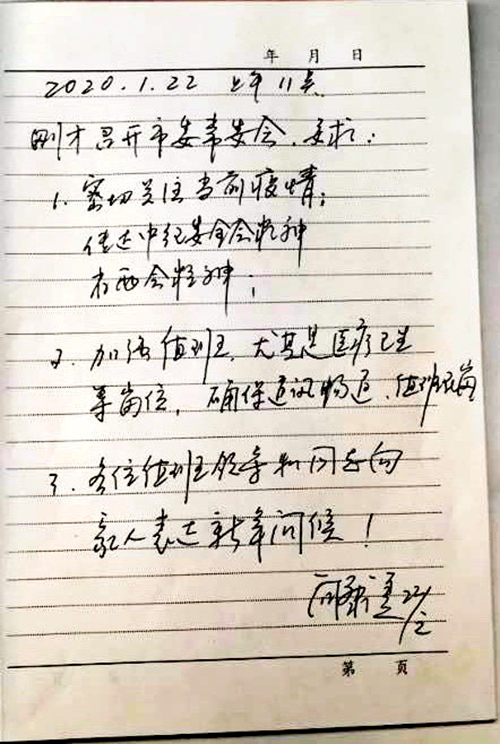 年 月 日
2020.1.22 上午11点
刚才召开市委常委会,要求:
1、密切关注当前疫情;
传达中纪委全会精神
市两会精神;
2、加强值班,尤其是医疗卫生
等岗位,确保通讯畅通、值班在岗
3、各位值班领导和同志向
家人表达新年问候!
22/1
第 页